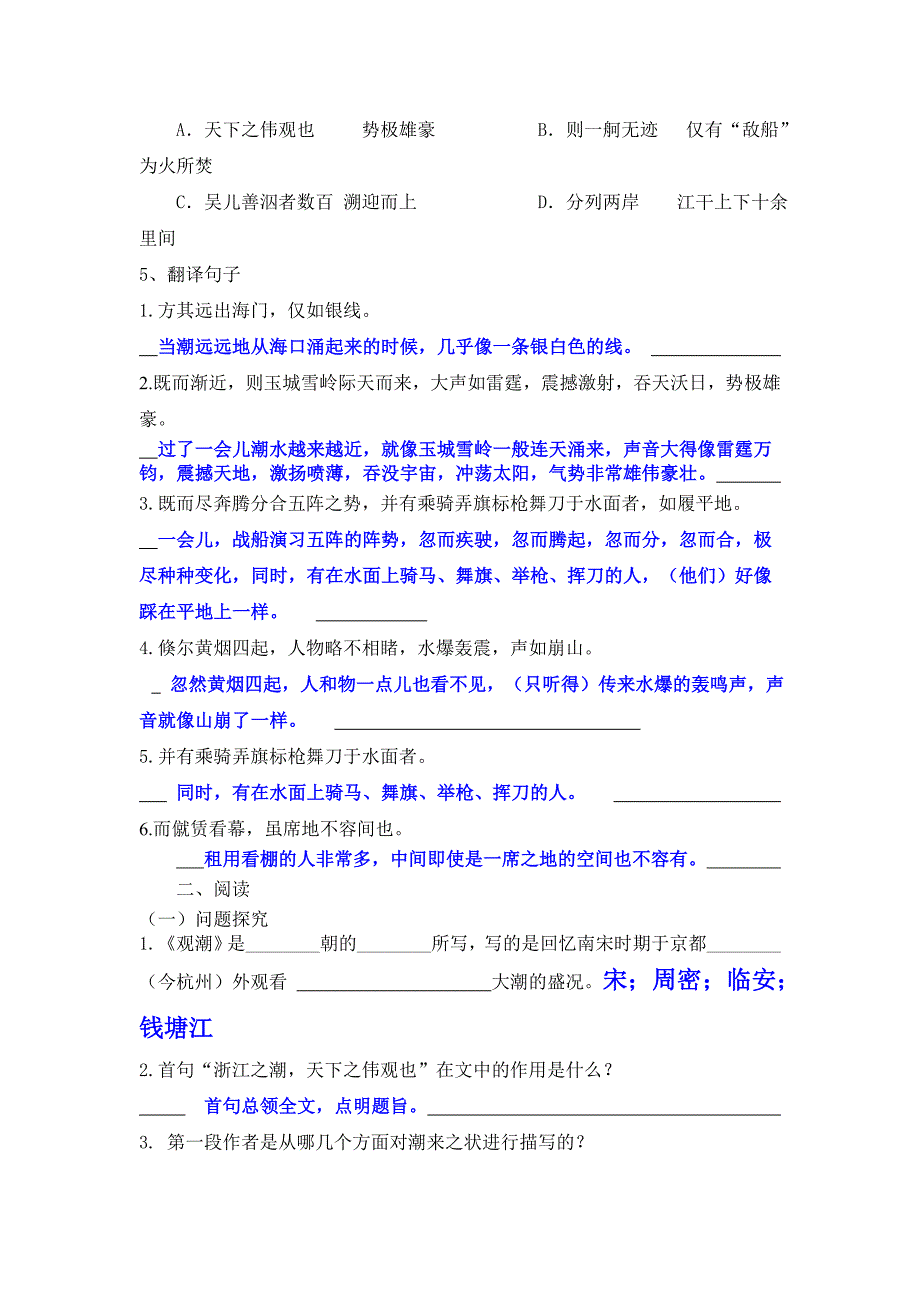 A．天下之伟观也 势极雄豪 B．则一舸无迹 仅有“敌船”
为火所焚
C．吴儿善泅者数百 溯迎而上 D．分列两岸 江干上下十余
里间
5、翻译句子
1.方其远出海门，仅如银线。
__当潮远远地从海口涌起来的时候，几乎像一条银白色的线。 ______________
2.既而渐近，则玉城雪岭际天而来，大声如雷霆，震撼激射，吞天沃日，势极雄
豪。
__过了一会儿潮水越来越近，就像玉城雪岭一般连天涌来，声音大得像雷霆万
钧，震撼天地，激扬喷薄，吞没宇宙，冲荡太阳，气势非常雄伟豪壮。_______
3.既而尽奔腾分合五阵之势，并有乘骑弄旗标枪舞刀于水面者，如履平地。
__一会儿，战船演习五阵的阵势，忽而疾驶，忽而腾起，忽而分，忽而合，极
尽种种变化，同时，有在水面上骑马、舞旗、举枪、挥刀的人，（他们）好像
踩在平地上一样。 ____________
4.倏尔黄烟四起，人物略不相睹，水爆轰震，声如崩山。
_ 忽然黄烟四起，人和物一点儿也看不见，（只听得）传来水爆的轰鸣声，声
音就像山崩了一样。 _________________________________
5.并有乘骑弄旗标枪舞刀于水面者。
___ 同时，有在水面上骑马、舞旗、举枪、挥刀的人。 __________________
6.而僦赁看幕，虽席地不容间也。
___租用看棚的人非常多，中间即使是一席之地的空间也不容有。________
二、阅读
（一）问题探究
1.《观潮》是________朝的________所写，写的是回忆南宋时期于京都________
（今杭州）外观看 _____________________大潮的盛况。宋；周密；临安；
钱塘江
2.首句“浙江之潮，天下之伟观也”在文中的作用是什么？
_____ 首句总领全文，点明题旨。______________________________________
3. 第一段作者是从哪几个方面对潮来之状进行描写的？